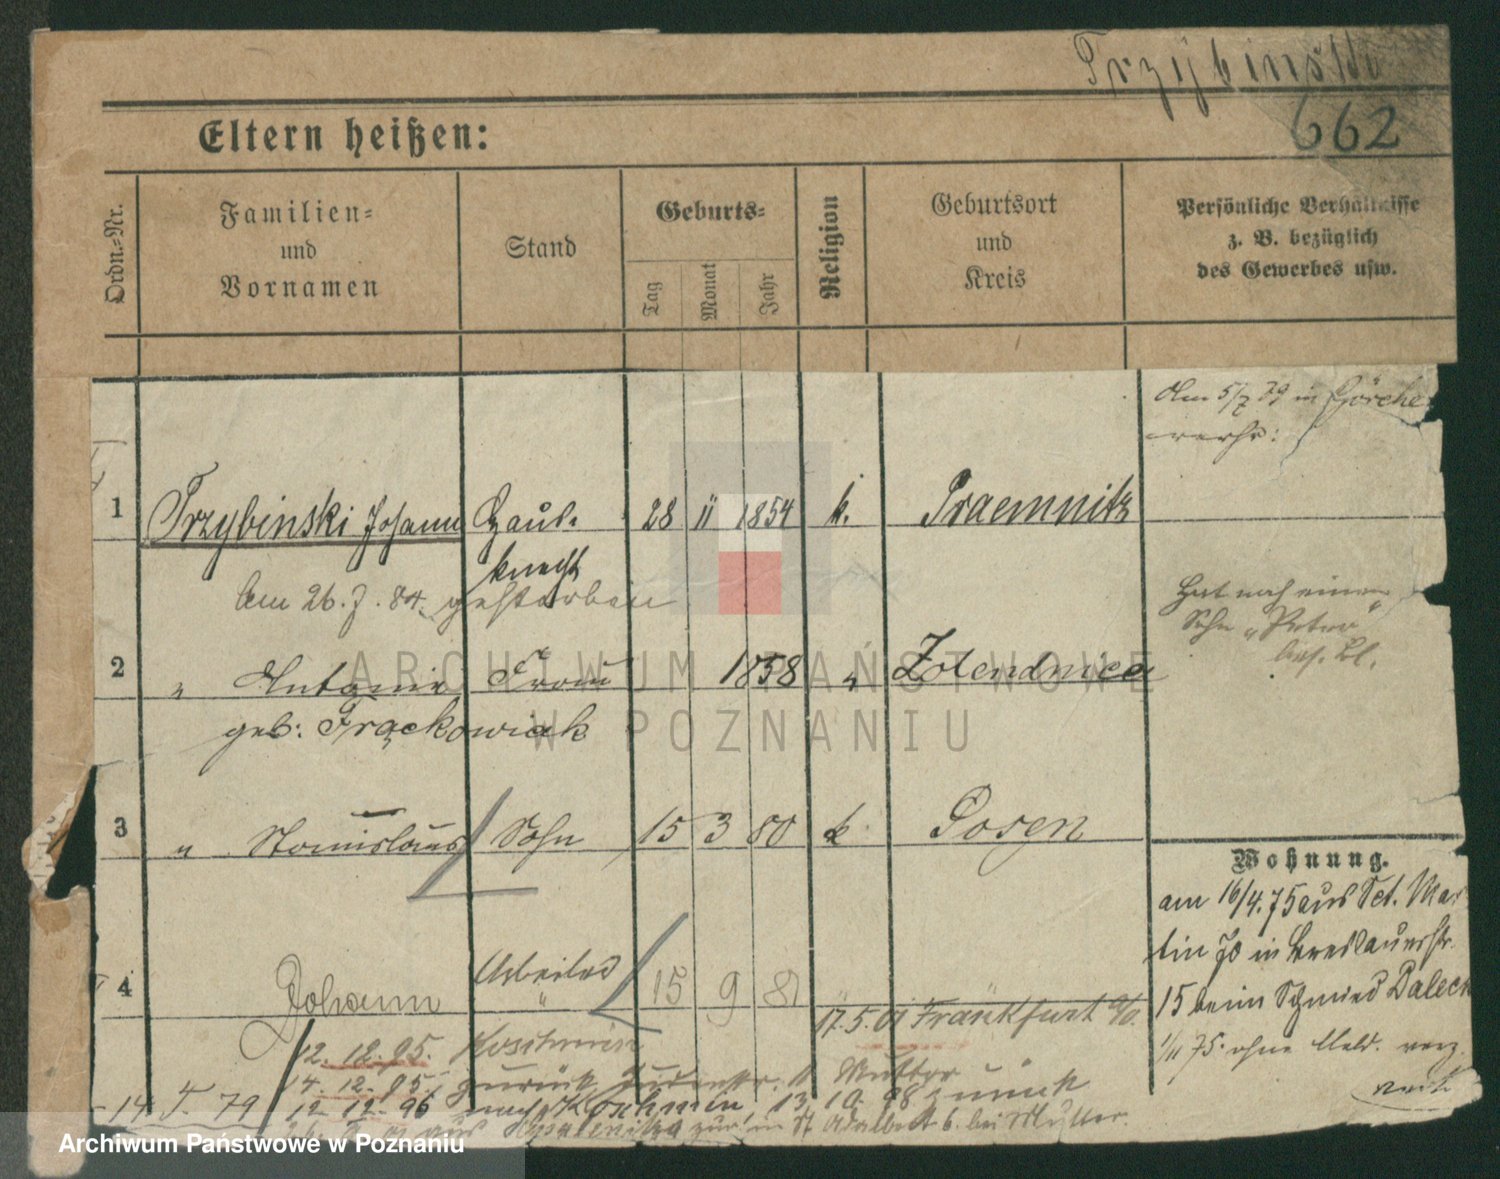 Trzybinski
662
Eltern heißen:
Ordn.-Nr.
Familien-
und
Vornamen
Stand
Geburts-
Tag
Monat
Jahr
Religion
Geburtsort
und
Kreis
Persönliche Verhältnisse
z. B. bezüglich
des Gewerbes usw.
Am 5/7 79 in Görchen
1 Trzybinski Johann Haus- 28 11 1854 k. Praemnitz
knecht
Am 26. 7. 84. gestorben
Hat noch einen
Sohn „Peter"
bes. Bl.
2 " Antonie Frau 1858 " Zolendnica
geb: Frąckowiak
3 " Stanislaus Sohn 15 3 80 k Posen
Wohnung.
am 16/4. 75 aus Sct. Mar
tin 70 in Breslauerstr.
15 beim Schmied Daleck
1/11 75. ohne Meld. verz.
4 Johann Arbeiter 15 9 81
17. 5. 01 Frankfurt a/O.
12. 12. 95. Koschmin
14. 12. 95. zurück Judenstr. 11 Mutter
14 T. 79 12 12. 96 nach Koschmin 13 10. 98 zurück
aus zur in St Adalbert 6. bei Mutter.
ARCHIWUM PAŃSTWOWE
W POZNANIU
Archiwum Państwowe w Poznaniu